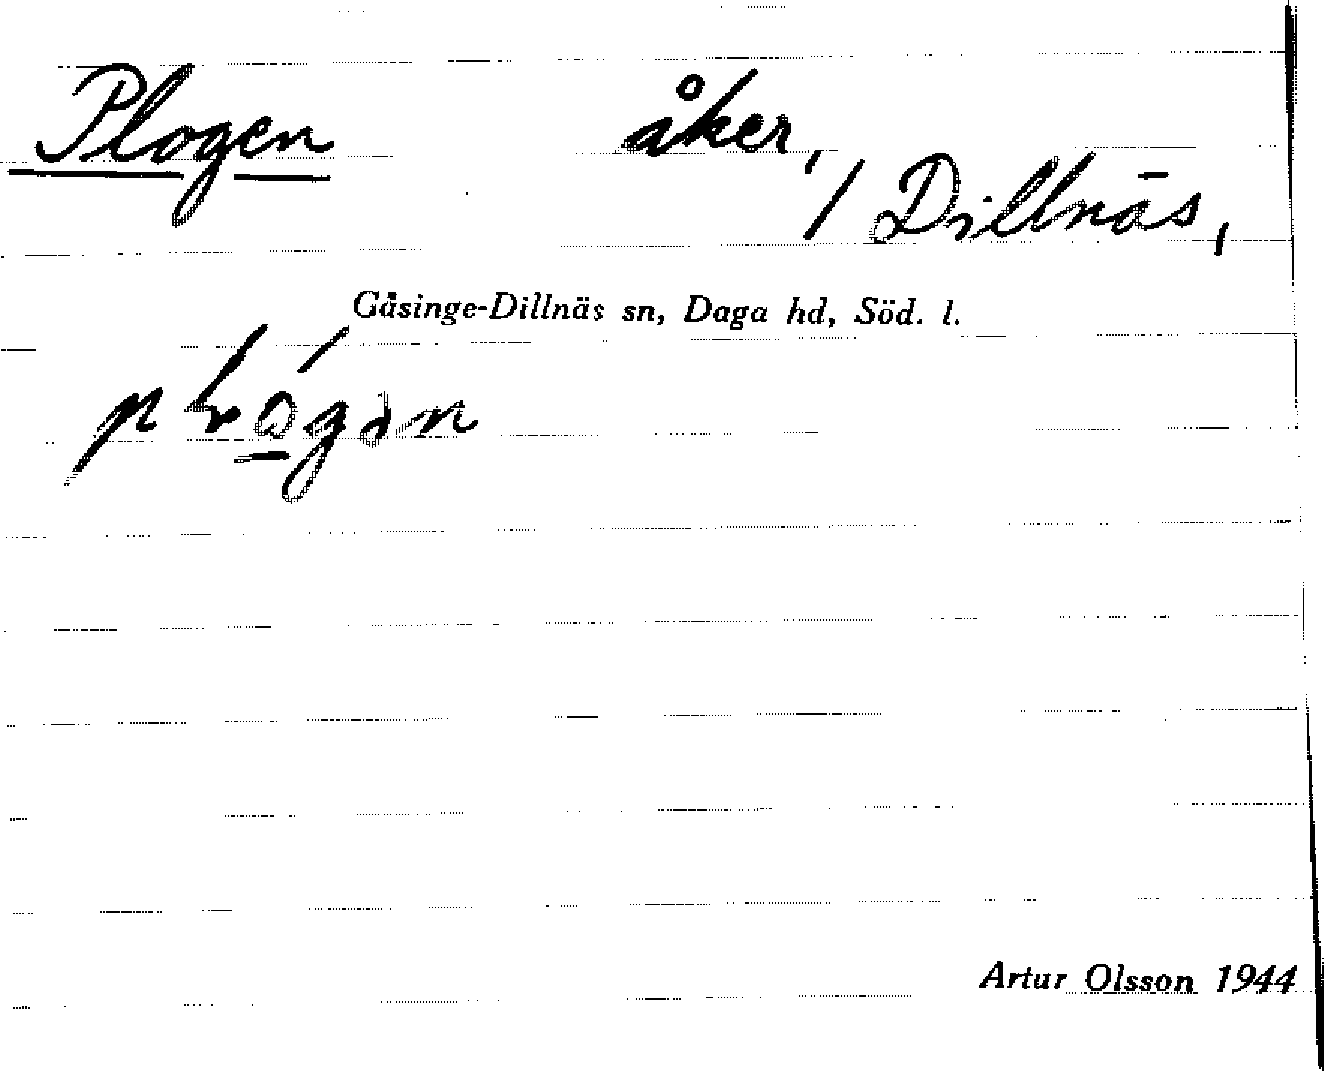 Plogen åker,
/ Dillnäs,
Gåsinge-Dillnäs sn, Daga hd, Söd. l.
Artur Olsson 1944